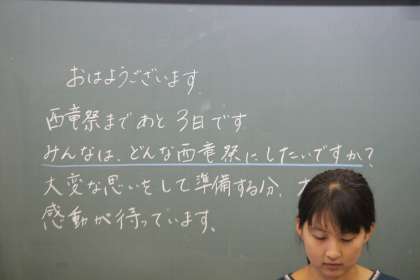 おはようございます.
西竜祭まであと3日です
みんなは、どんな西竜祭にしたいですか?
大変な思いをして準備する分、
感動が待っています。